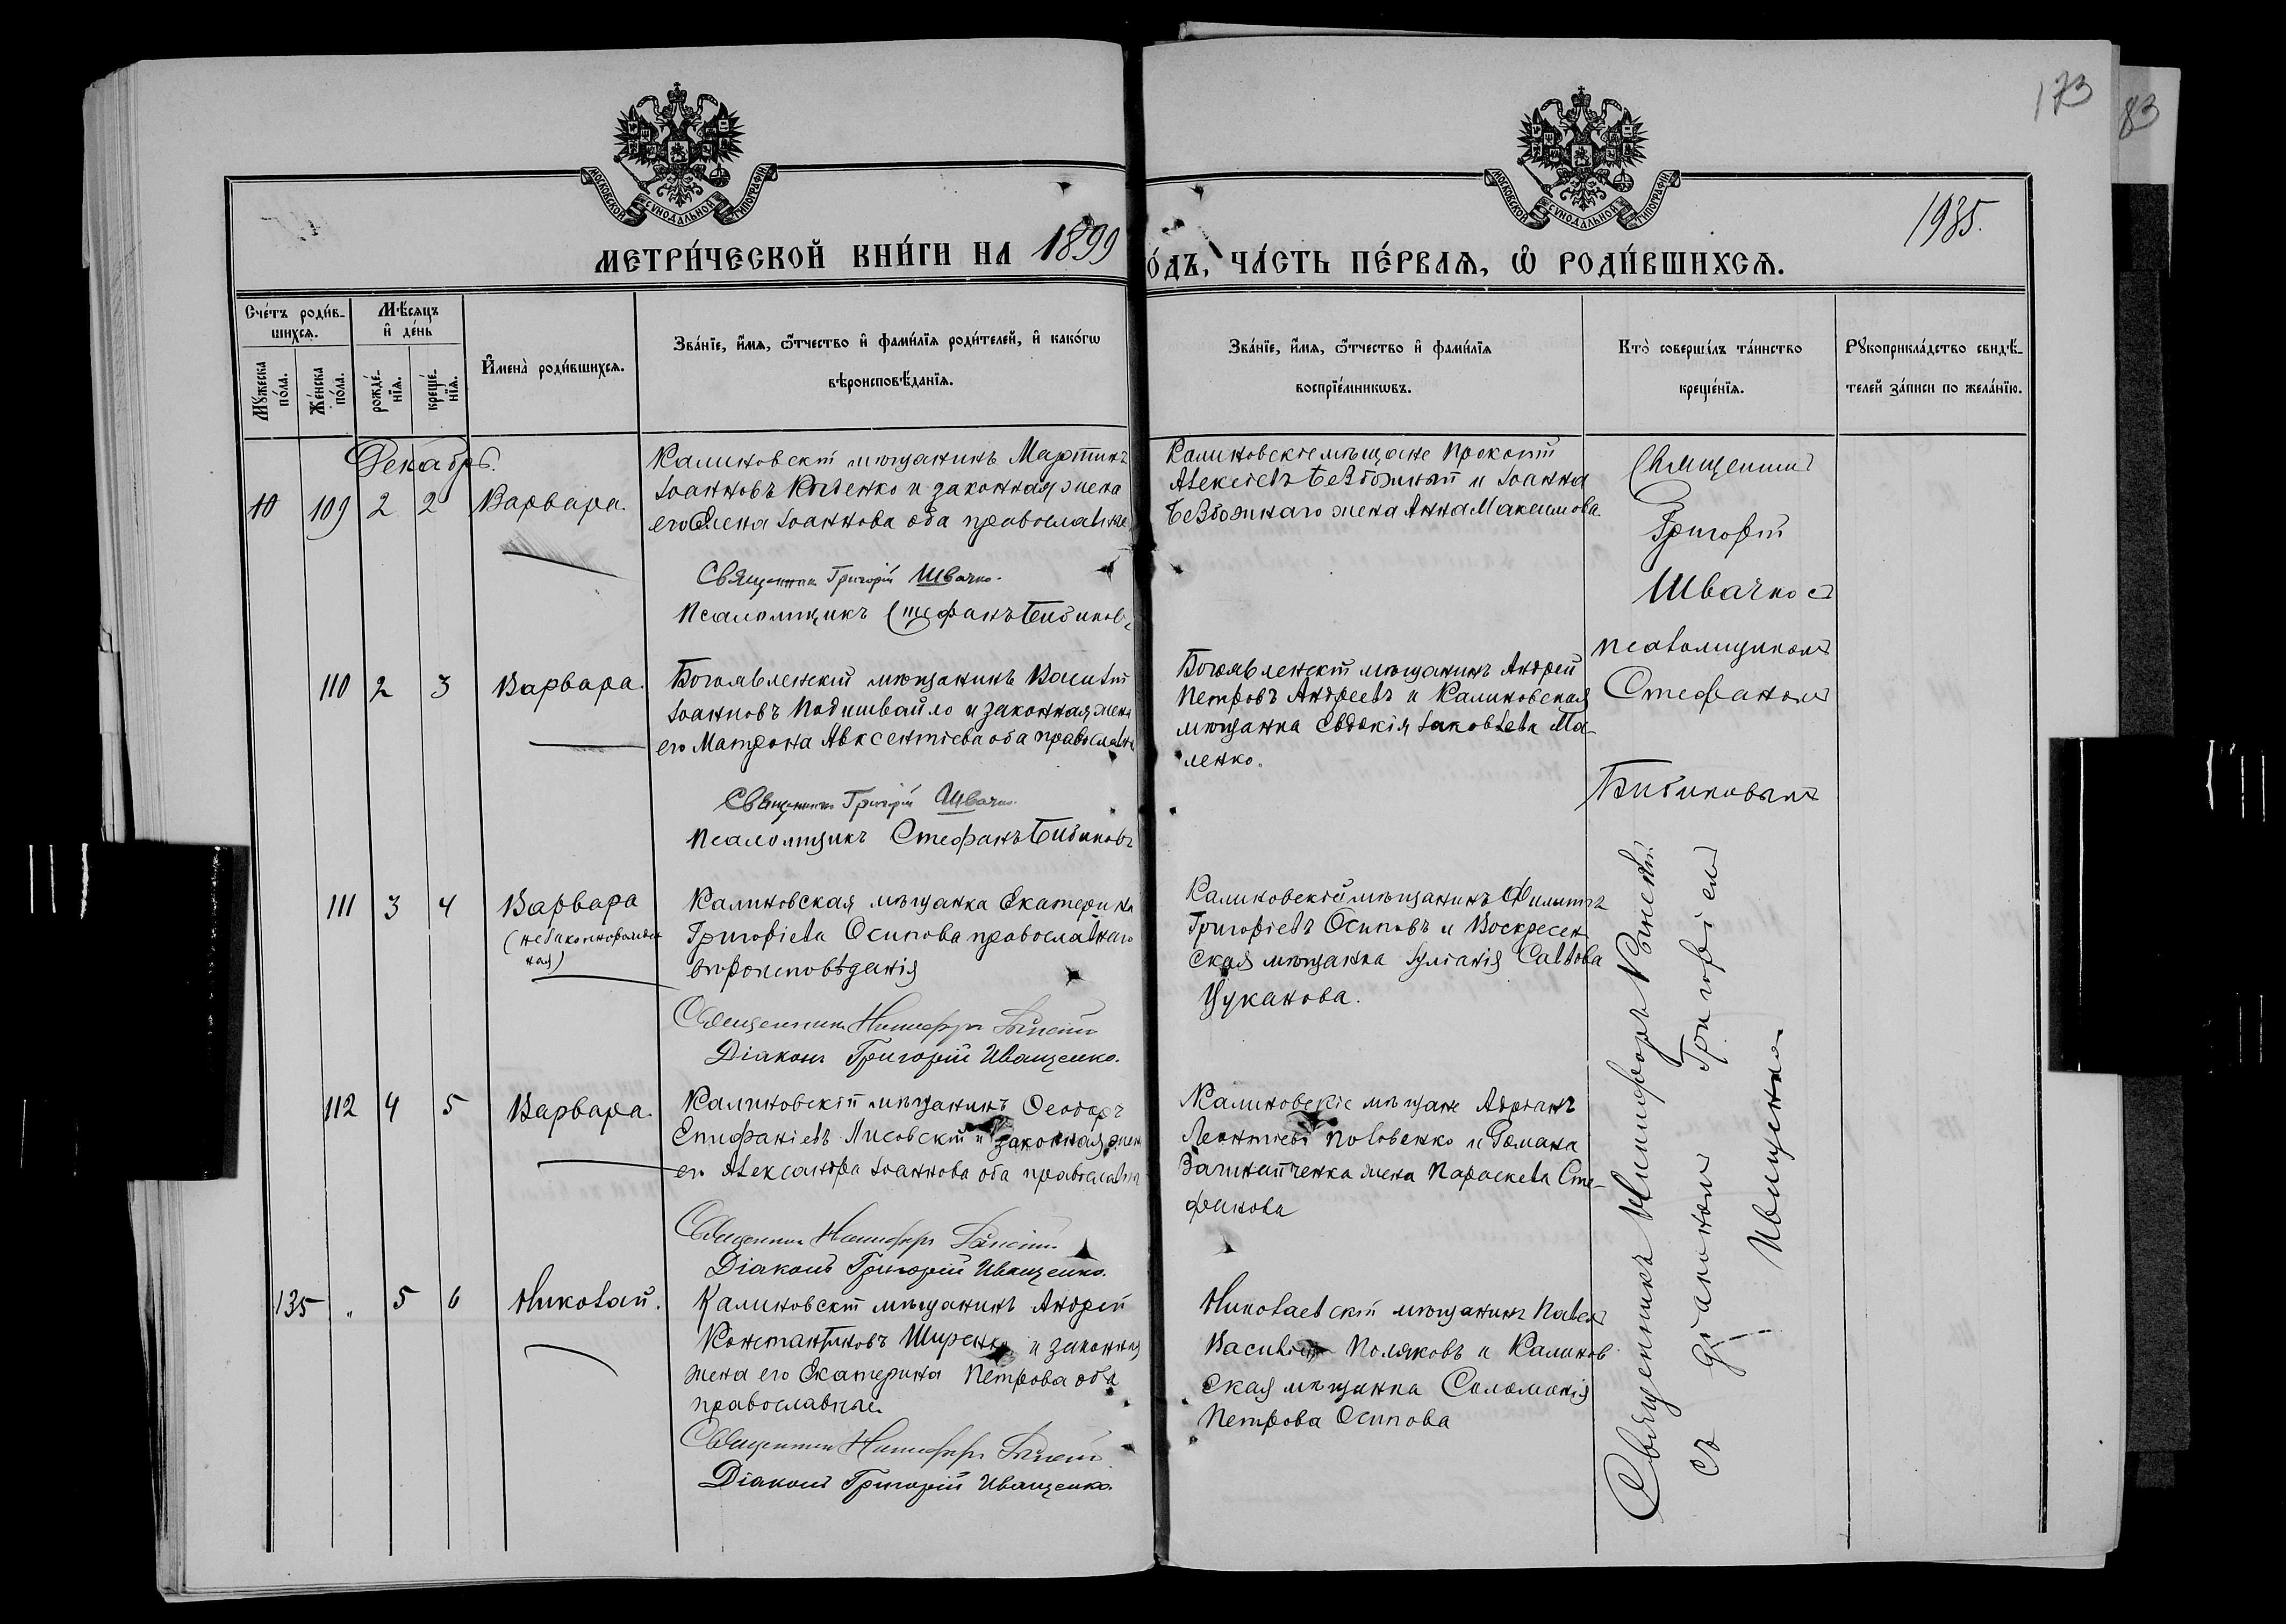 173
83
1935.
МОСКОВСКОЙ СѴНОДАЛЬНОЙ ТИПОГРАФІИ
МОСКОВСКОЙ СѴНОДАЛЬНОЙ ТИПОГРАФІИ
МЕТРИ́ЧЕСКОЙ КНИ́ГИ НА 1899
О́ДЪ, ЧА́СТЬ ПЕ́РВАѦ, Ѽ РОДИ́ВШИХСѦ.
Сче́тъ роди́в-
шихсѧ.
Мꙋ́жеска по́ла.
Же́нска по́ла.
Мѣ́сѧцъ
и҆ де́нь
рожде́-нїѧ.
креще́-нїѧ.
И҆мена̀ роди́вшихсѧ.
Зва́нїе, и҆́мѧ, ѻ҆́тчество и҆ фами́лїѧ роди́телей, и҆ како́гѡ
вѣроисповѣ́данїѧ.
Зва́нїе, и҆́мѧ, ѻ҆́тчество и҆ фами́лїѧ
воспрїе́мникѡвъ.
Кто̀ соверша́лъ та́инство
креще́нїѧ.
Рꙋкоприкла́дство свидѣ́-
телей за́писи по жела́нїю.
Декабрь.
10 109 2 2 Варвара.
Калиновскій мѣщанинъ Мартинъ
Іоанновъ и законная жена
его Елена Іоаннова оба православные
Священникъ Григорій Швачко.
Псаломщикъ Стефанъ Бибиковъ
Калиновскіе мѣщане Прокопій
Алексіевъ Безбожный и Іоанна
Безбожнаго жена Анна Максимова.
Священникъ
Григорій
Швачко съ
псаломщикомъ
Стефаномъ
Бибиковымъ
110 2 3 Варвара.
Богоявленскій мѣщанинъ Василій
Іоанновъ Подишвайло и законная жена
его Матрона Авксентіева оба православн
Священникъ Григорій Швачко.
Псаломщикъ Стефанъ Бибиковъ
Богоявленскій мѣщанинъ Андрей
Петровъ Андреевъ и Калиновская
мѣщанка Евдокія Іаковлева Ма-
ленко.
111 3 4 Варвара
(незаконнорожден
ная)
Калиновская мѣщанка Екатерина
Григоріева Осипова православнаго
вѣроисповѣданія
Священникъ Никифоръ
Діаконъ Григорій Иващенко.
Калиновскій мѣщанинъ Филиппъ
Григоріевъ Осиповъ и Воскресен
ская мѣщанка Іуліанія Саввова
Цуканова.
Священникъ Никифоръ
съ діакономъ Григоріемъ
Иващенкомъ
112 4 5 Варвара.
Калиновскій мѣщанинъ Ѳеодоръ
Епифаніевъ Лисовскій и законная жен
его Александра Іоаннова оба православн
Священникъ Никифоръ
Діаконъ Григорій Иващенко.
Калиновскіе мѣщане Адріанъ
Леонтіевъ Половенко и Романа
жена Параскева Сте-
фанова
135 " 5 6 Николай.
Калиновскій мѣщанинъ Андрей
Константиновъ Ширенко и законная
жена его Екатерина Петрова оба
православные
Священникъ Никифоръ
Діаконъ Григорій Иващенко.
Николаевскій мѣщанинъ Павелъ
Василіевъ Поляковъ и Калинов
ская мѣщанка Соломонія
Петрова Осипова